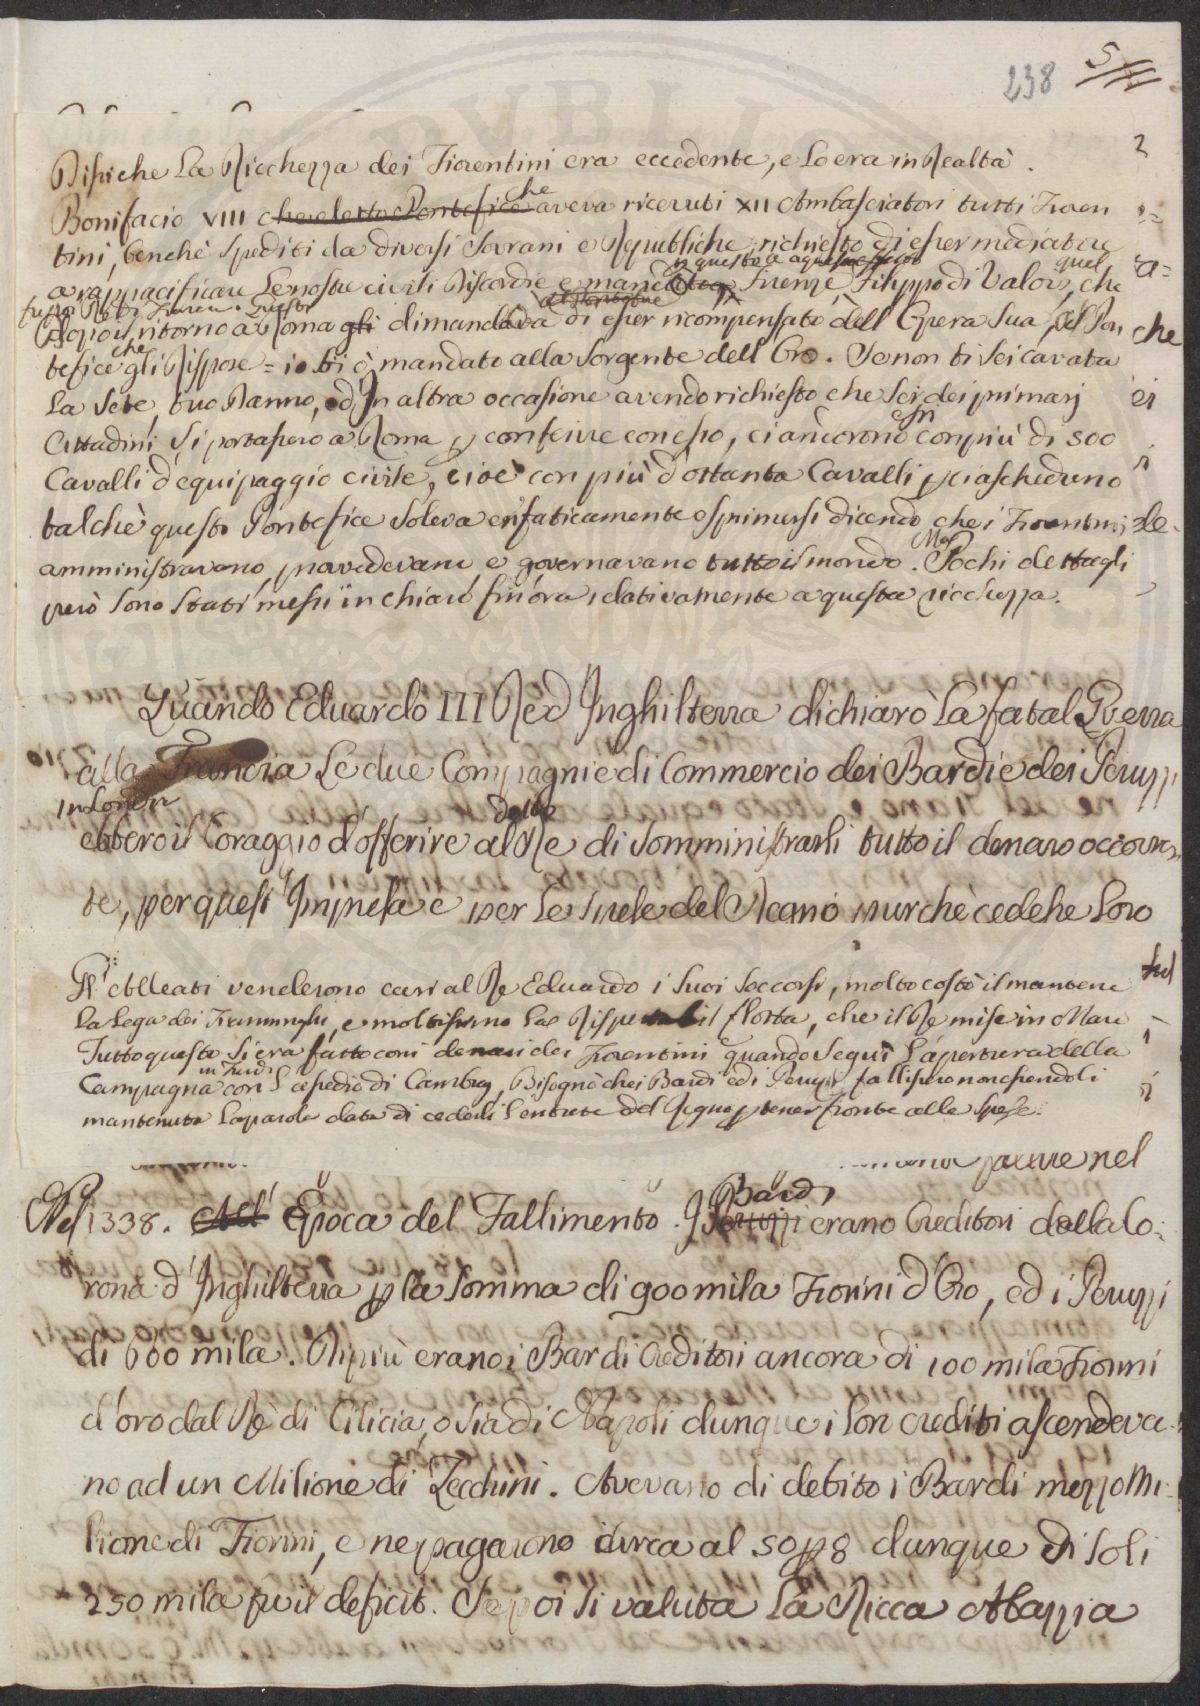 238
Dissi che la Ricchezza dei Fiorentini era eccedente, e lo era in Realtà.
Bonifacio VIII che eletto Pontefice che aveva ricevuti XII Ambasciatori tutti Fioren
tini, benchè spediti da diversi Sovrani e Republiche, richiesto di esser mediatore
a rappacificare le nostre civili Discordie e mandò a Firenze Filippo di Valois, che
dopo il ritorno a Roma gli dimandava di esser ricompensato dell'Opera sua, il Pon
tefice che gli Rispose = io ti ò mandato alla sorgente dell'Oro. Se non ti sei cavata
la Sete, tuo Danno, ed in altra occasione avendo richiesto che sei dei primarj
Cittadini si portassero a Roma p conferire con esso, ci andorono essi con più di 500
Cavalli d'equipaggio civile, cioè con più d'ottanta Cavalli p ciascheduno
talchè questo Pontefice soleva enfaticamente esprimersi dicendo, che i Fiorentini
amministravano, provedevano e governavano tutto il mondo. Ma Pochi dettagli
però sono stati messi in chiaro fin'ora relativamente a questa ricchezza.
Quando Eduardo III Re d'Inghilterra dichiarò la fatal Guerra
alla Francia le due Compagnie di Commercio dei Bardi e dei Peruzzi
in Londra
ebbero il Coraggio d'offerire al detto Re di somministrarli tutto il denaro occorren
te, per quest'Impresa e per le spese del Regno purchè cedesse loro
Gl'Alleati venderono cari al Re Eduardo i suoi soccorsi, molto costò il mantenere
la Lega dei Fiamminghi, e moltissimo la Rispettabil flotta, che il Re mise in Mare
Tutto questo si era fatto coni denari dei Fiorentini quando seguì l'apertura della
Campagna con l'assedio di Cambray, Bisognò che i Bardi ed i Peruzzi fallissero non essendoli
mantenuta la parola data di cederli l'entrate del Regno p tener fronte alle spese.
parere nel
Nel 1338. All' Epoca del Fallimento. I Peruzzi Bardi erano Creditori dalla Co:
rona d'Inghilterra p la somma di 900 mila Fiorini d'Oro, ed i Peruzzi
di 600 mila. Di più erano i Bardi Creditori ancora di 100 mila Fiorini
d'oro dal Rè di Cilicia, o sia di Napoli dunque i lori crediti ascendeva:
no ad un Milione di Zecchini. Avevano di debito i Bardi mezzo Mi:
lione di Fiorini, e ne pagarono circa al 50 p 8 dunque di soli
250 mila fu il deficit. Se poi si valuta la Ricca Mappia